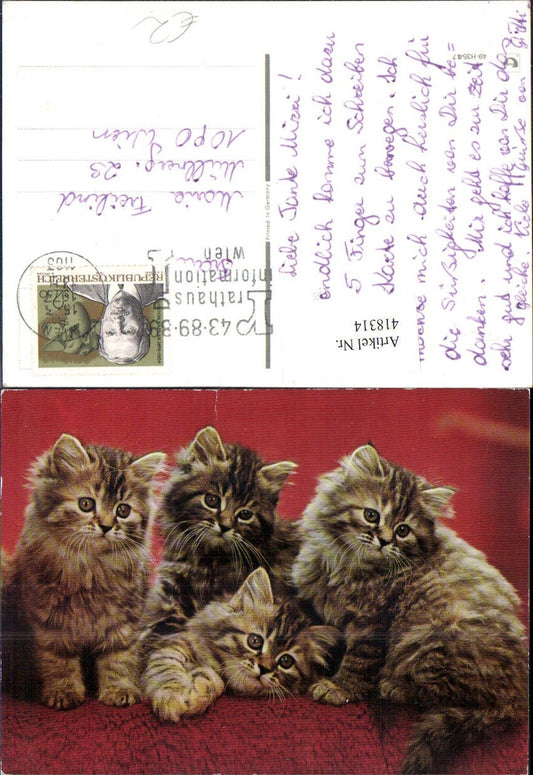 €2
49-H3547
Liebe Tante Mizai!
endlich komme ich dazu
5 Finger zum Schreiben
Karte zu bewegen. Ich
möchte mich auch herzlich für
die Süßigkeiten von Dir be=
danken. Mir geht es zur Zeit
sehr gut und ich hoffe von Dir das
gleiche. Viele Grüße von
Printed in Germany
Maria
Müllnerg. 23
1090 Wien
REPUBLIK ÖSTERREICH
1103
43·89·89
rathaus
information
wien
Artikel Nr.
418314